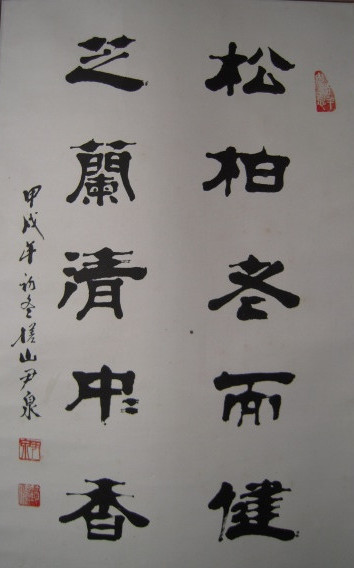 松柏老而健
芝蘭清香
甲戌年初冬山尹泉